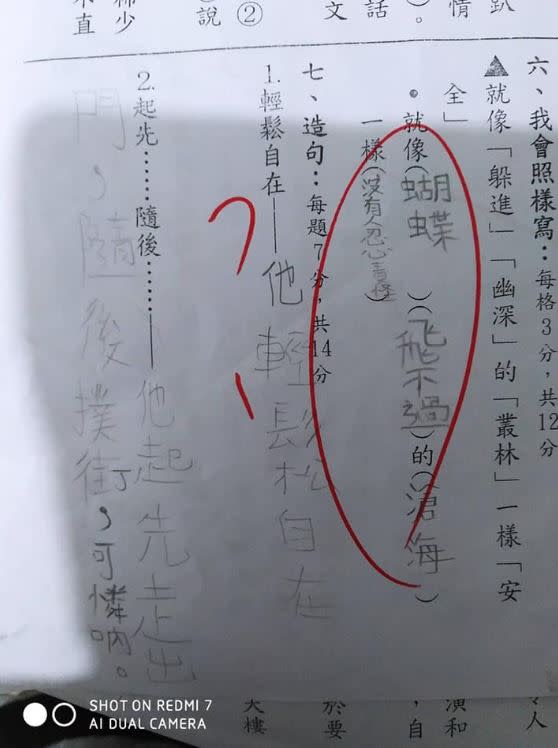 六、我會照樣寫：每格3分，共12分
▲就像「躲進」「幽深」的「叢林」一樣「安
全」
•就像（蝴蝶）（飛不過）的（滄海）
一樣（沒有人忍心責怪）
七、造句：每題7分，共14分
1.輕鬆自在——他輕鬆自在
？
2.起先……隨後……——他起先走出
門，隨後撲街，可憐吶。
SHOT ON REDMI 7
AI DUAL CAMERA